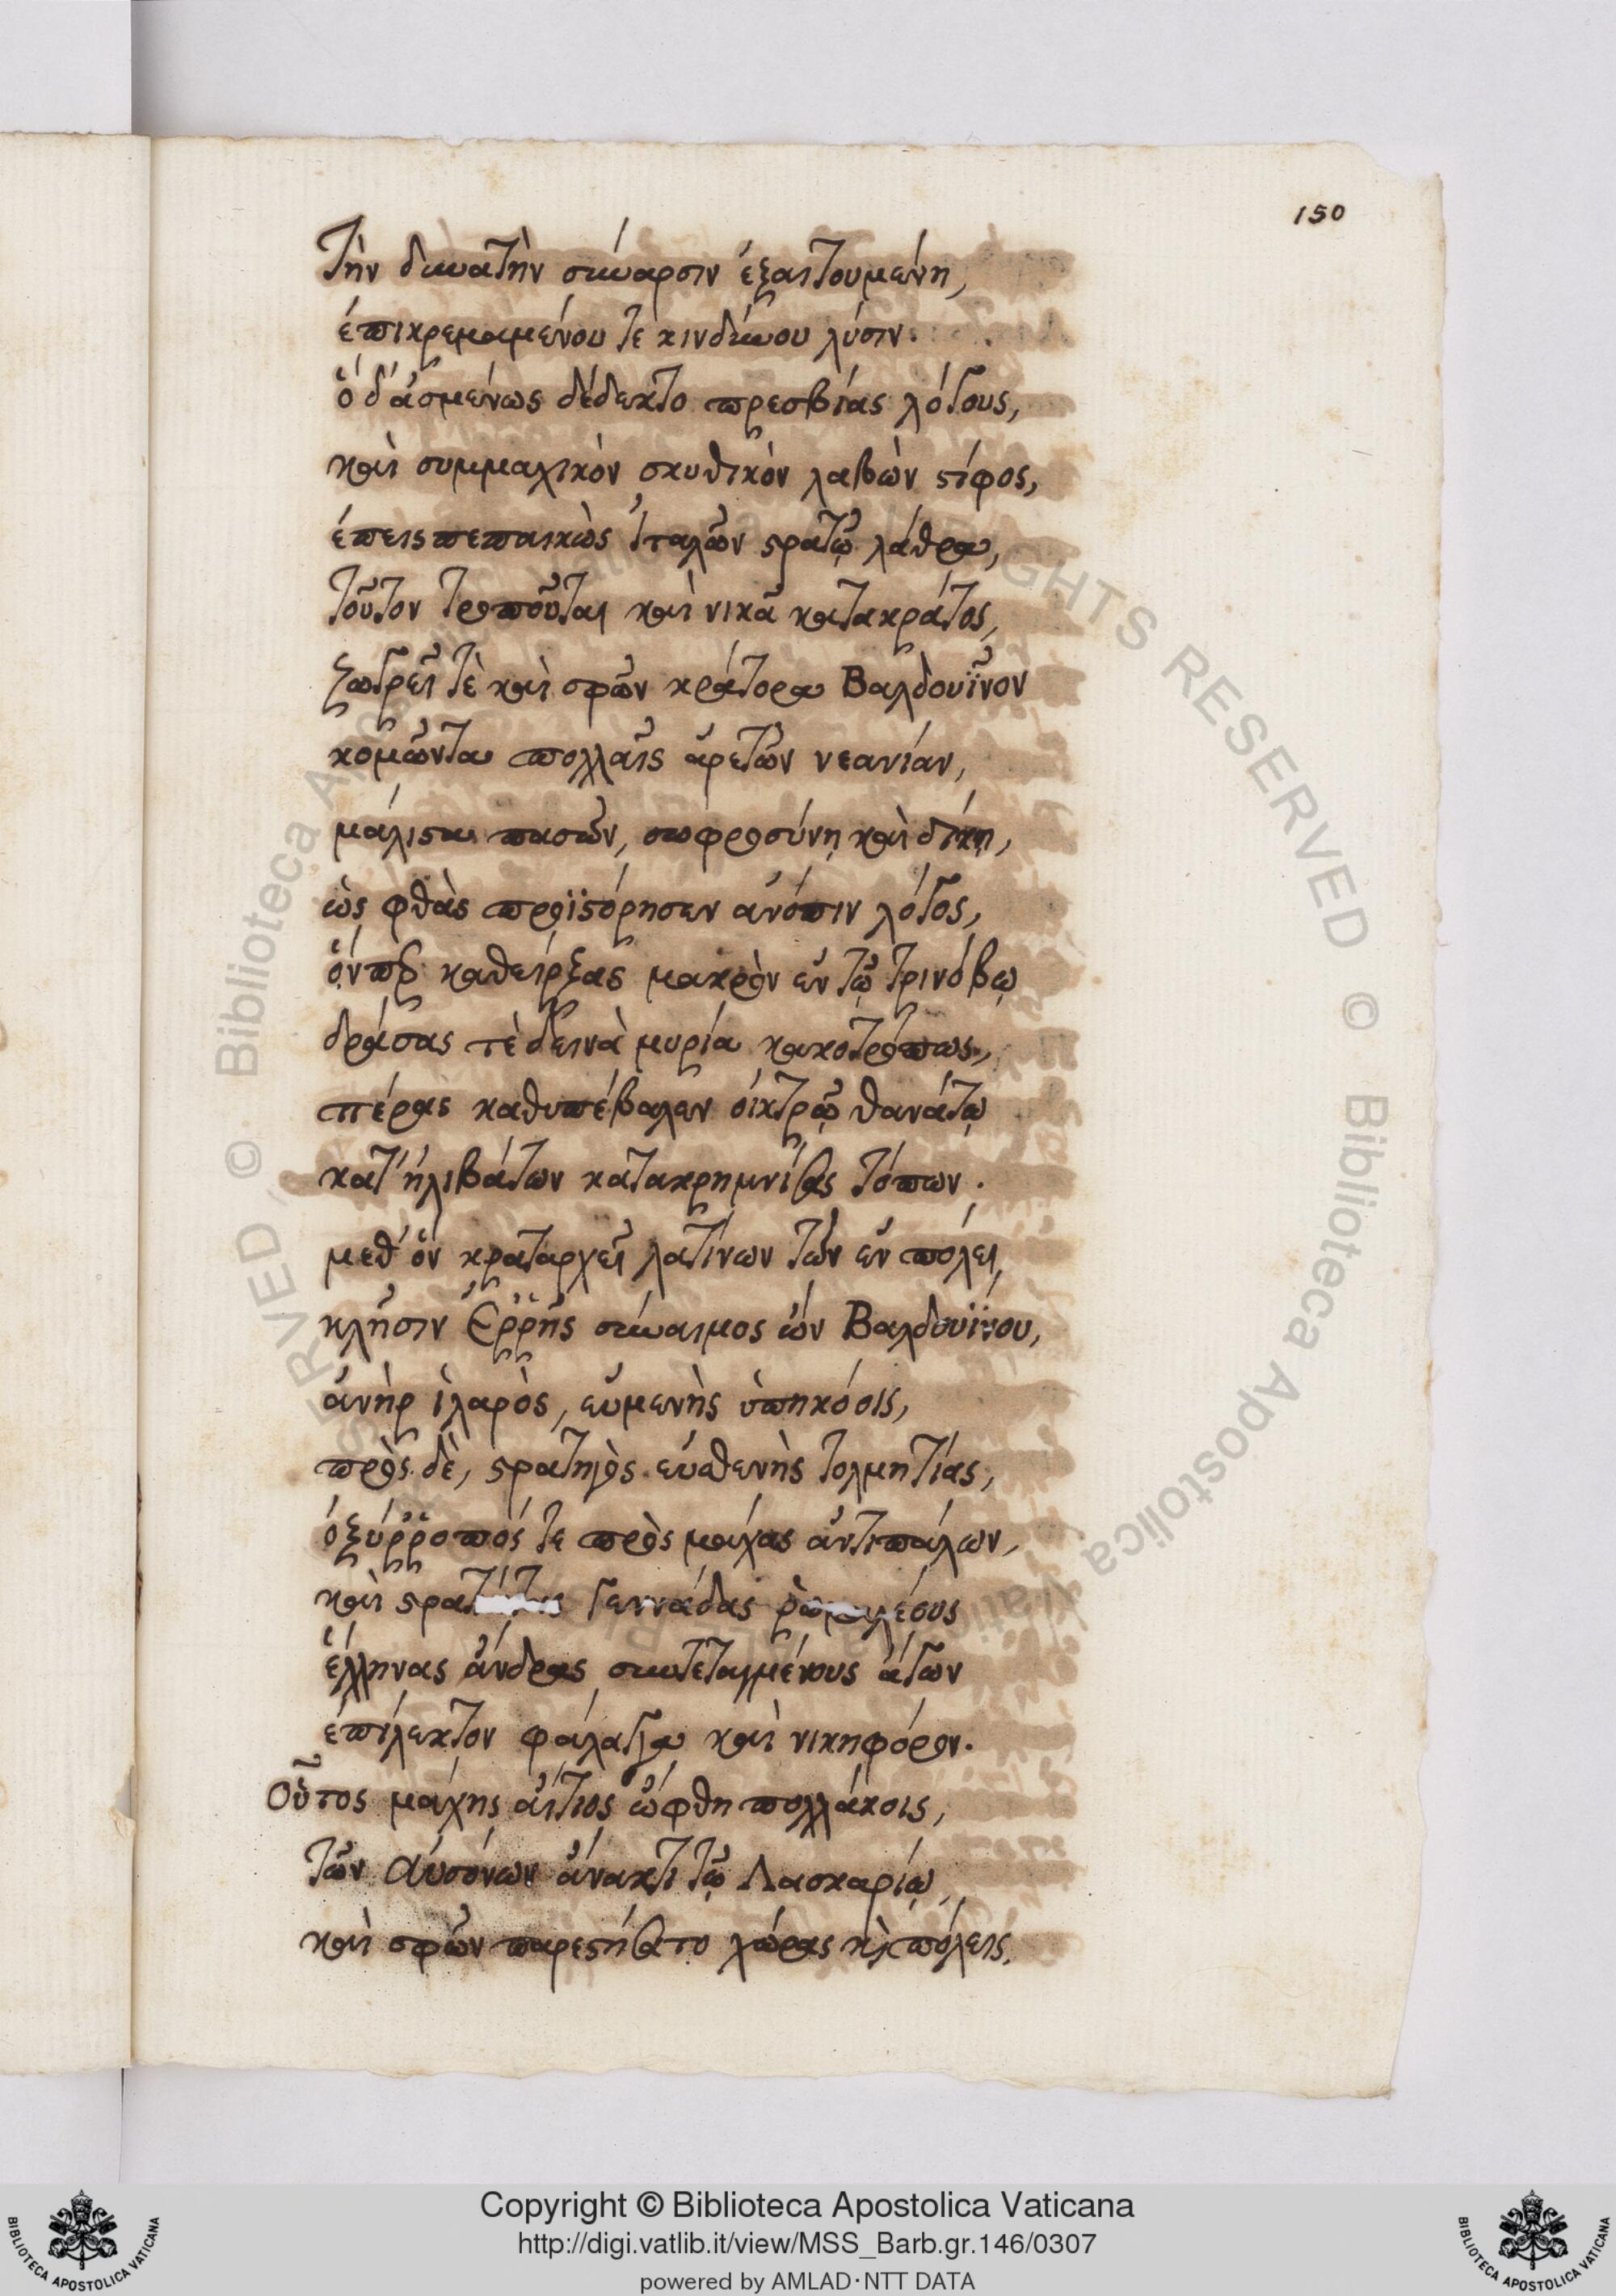 150
Τὴν δυνατὴν σύναρσιν ἐξαιτουμένη,
ἐπικρεμαμένου τε κινδύνου λύσιν.
ὁ δ' ἀσμένως δέδεκτο πρεσβίας λόγους,
καὶ συμμαχικὸν σκυθικὸν λαβὼν στίφος,
ἐπεισπεπαικὼς ἰταλῶν στρατῷ λάθρα,
τοῦτον τροποῦται καὶ νικᾶ κατακράτος,
ζωγρεῖ τὲ καὶ σφῶν κράτορα Βαλδουῖνον
κομῶντα πολλαῖς ἀρετῶν νεανίαν,
μάλιστα πασῶν, σωφροσύνῃ καὶ δίκῃ,
ὡς φθὰς προϊστόρησεν ἀνόπιν λόγος,
ὅνπερ καθείρξας μακρὸν ἐν τῷ τρινόβῳ
δράσας τὲ δεινὰ μυρία κακοτρόπως,
πέρας καθυπέβαλεν οἰκτρῷ θανάτῳ
κατ' ἠλιβάτων κατακρημνίσας τόπων.
μεθ' ὃν κραταρχεῖ λατίνων τῶν ἐν πόλει,
κλῆσιν Ἐρρῆς σύναιμος ὢν Βαλδουΐνου,
ἀνὴρ ἱλαρὸς, εὐμενὴς ὑπηκόοις,
πρὸς δὲ, στρατηγὸς εὐσθενὴς τολμητίας,
ὀξύρροπός τε πρὸς μάχας ἀντιπάλων,
καὶ γεννάδας
ἕλληνας ἄνδρας συντεταγμένους ἄγων
ἐπίλεκτον φάλαγγα καὶ νικηφόρον.
Οὗτος μάχης αἴτιος ὤφθη πολλάκοις,
τῶν Αὐσόνων ἄνακτι τῷ Λασκαρίῳ,
καὶ σφῶν παρεστήσατο χώρας κὶ πόλεις.
Copyright © Biblioteca Apostolica Vaticana
http://digi.vatlib.it/view/MSS_Barb.gr.146/0307
powered by AMLAD·NTT DATA
BIBLIOTECA APOSTOLICA VATICANA
BIBLIOTECA APOSTOLICA VATICANA